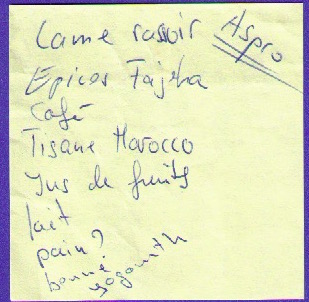 Lame rasoir
Aspro
Epices Fajita
Café
Tisane Marocco
Jus de fruits
lait
pain?
yogourth